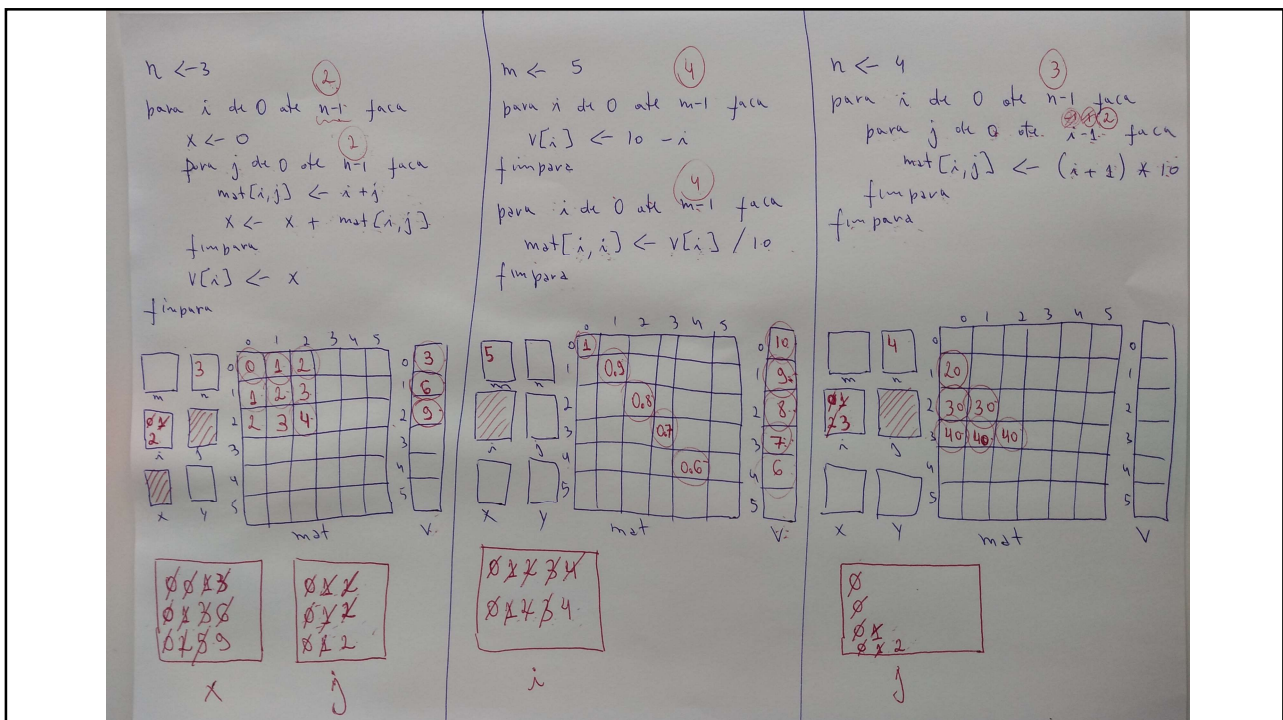 n <- 3
2
para i de 0 até n-1 faca
x <- 0
2
para j de 0 até n-1 faca
mat[i,j] <- i+j
x <- x + mat[i,j]
fimpara
v[i] <- x
fimpara
0 1 2 3 4 5
3
m n
0 0 1 2
1 1 2 3
2 2 3 4
3
4
5
0 1
2
i j
x y
mat
0 3
1 6
2 9
V
0 0 1 3
0 1 3 6
0 2 5 9
x
0 1 2
0 1 2
0 1 2
j
m <- 5
4
para i de 0 até m-1 faca
v[i] <- 10 - i
fimpara
4
para i de 0 até m-1 faca
mat[i,i] <- v[i] / 10
fimpara
0 1 2 3 4 5
5
m n
0 1
1 0.9
2 0.8
3 0.7
4 0.6
5
i j
x y
mat
0 10
1 9
2 8
3 7
4 6
5
V
0 1 2 3 4
0 1 2 3 4
i
n <- 4
3
para i de 0 até n-1 faca
2
para j de 0 até i-1 faca
mat[i,j] <- (i+1) * 10
fimpara
fimpara
0 1 2 3 4 5
4
m n
0
1 20
2 30 30
3 40 40 40
4
5
0 1
2 3
i j
x y
mat
0
1
2
3
4
5
V
0
0
0 1
0 1 2
j